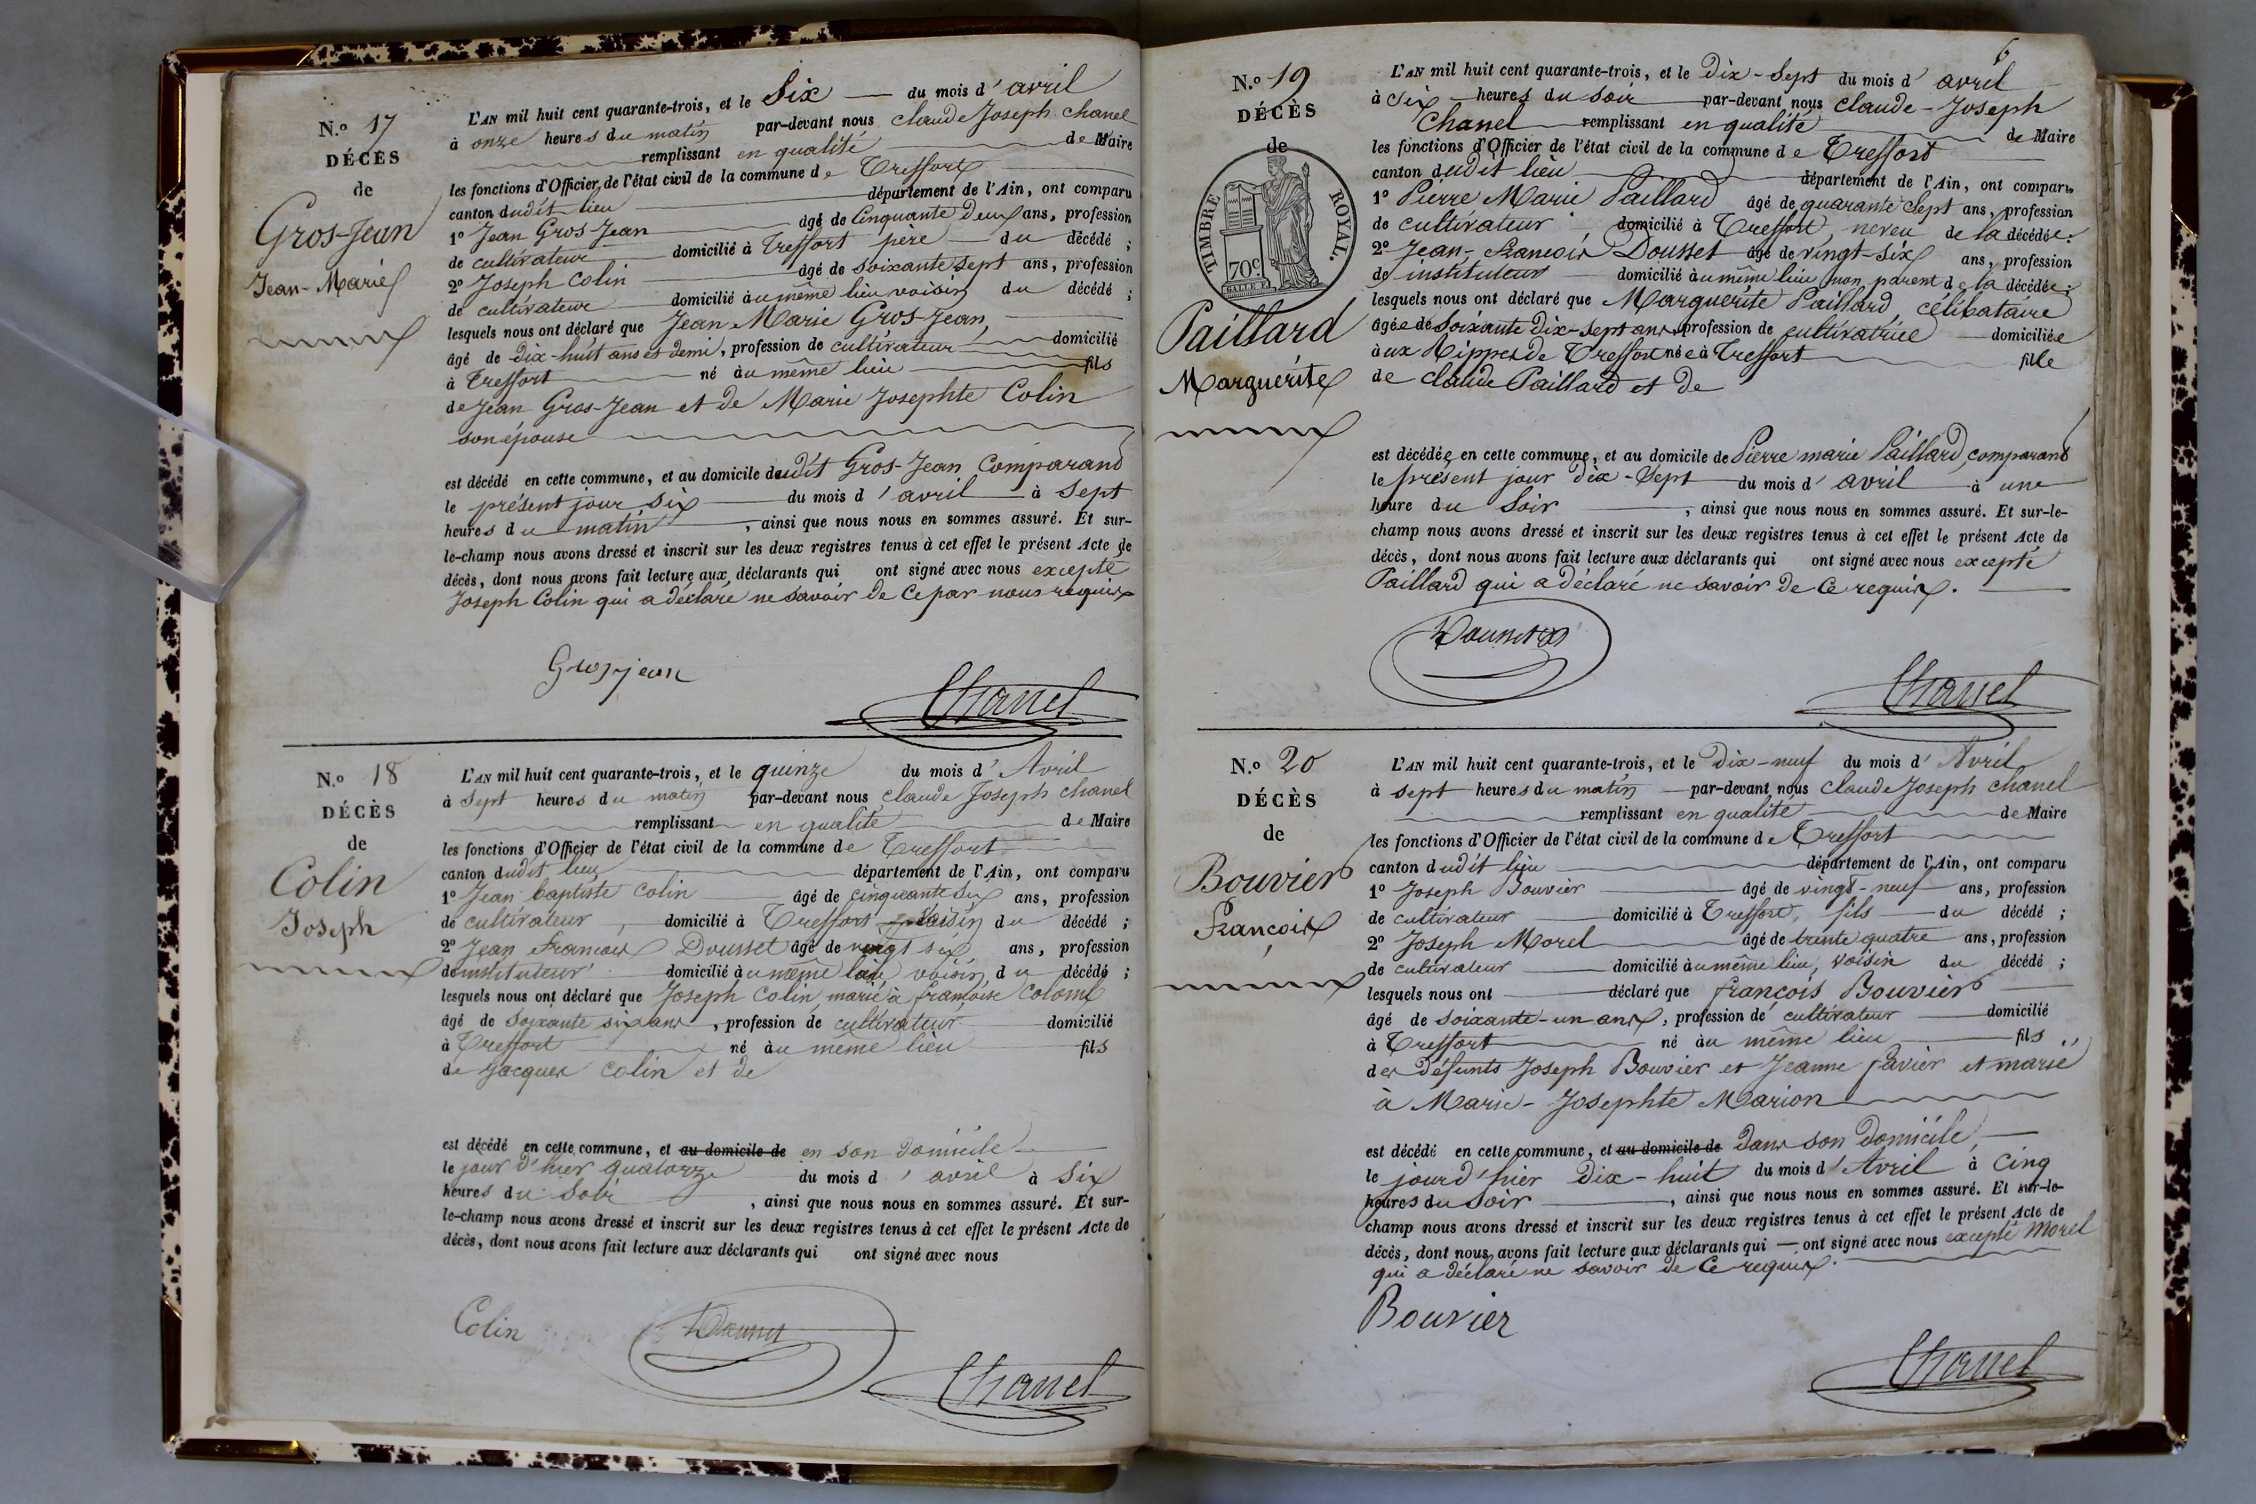 N.º 17
DÉCÈS
de
Gros-Jean
Jean-Marie
L'AN mil huit cent quarante-trois, et le Six du mois d'avril
à onze heures du matin par-devant nous Claude Joseph Chanel
remplissant en qualité de Maire
les fonctions d'Officier de l'état civil de la commune de Treffort
canton dudit lieu département de l'Ain, ont comparu
1º Jean Gros Jean âgé de Cinquante Deux ans, profession
de cultivateur domicilié à Treffort père du décédé ;
2º Joseph Colin âgé de soixante sept ans, profession
de cultivateur domicilié au même lieu voisin du décédé ;
lesquels nous ont déclaré que Jean Marie Gros-Jean,
âgé de dix-huit ans et demi, profession de cultivateur domicilié
à Treffort né au même lieu fils
de Jean Gros-Jean et de Marie Josephte Colin
son épouse
est décédé en cette commune, et au domicile dudit Gros-Jean Comparant
le présent jour six du mois d'avril à sept
heures du matin, ainsi que nous nous en sommes assuré. Et sur-
le-champ nous avons dressé et inscrit sur les deux registres tenus à cet effet le présent Acte de
décès, dont nous avons fait lecture aux déclarants qui ont signé avec nous excepté
Joseph Colin qui a déclaré ne savoir de ce par nous requis
Grosjean
Chanel
N.º 18
DÉCÈS
de
Colin
Joseph
L'AN mil huit cent quarante-trois, et le quinze du mois d'Avril
à sept heures du matin par-devant nous Claude Joseph Chanel
remplissant en qualité de Maire
les fonctions d'Officier de l'état civil de la commune de Treffort
canton dudit lieu département de l'Ain, ont comparu
1º Jean baptiste Colin âgé de cinquante six ans, profession
de cultivateur, domicilié à Treffort voisin du décédé ;
2º Jean Francois Dousset âgé de vingt six ans, profession
d'instituteur domicilié au même lieu voisin du décédé ;
lesquels nous ont déclaré que Joseph Colin, marié à françoise Colomb
âgé de soixante six ans, profession de cultivateur domicilié
à Treffort né au même lieu fils
de Jacques Colin et de
est décédé en cette commune, et au domicile de en son domicile
le jour d'hier quatorze du mois d'avril à six
heures du soir, ainsi que nous nous en sommes assuré. Et sur-
le-champ nous avons dressé et inscrit sur les deux registres tenus à cet effet le présent Acte de
décès, dont nous avons fait lecture aux déclarants qui ont signé avec nous
Colin
Dousset
Chanel
6
N.º 19
DÉCÈS
de
TIMBRE ROYAL.
70 c.
Paillard
Marguerite
L'AN mil huit cent quarante-trois, et le Dix-Sept du mois d'avril
à six heures du soir par-devant nous Claude-Joseph
Chanel remplissant en qualité de Maire
les fonctions d'Officier de l'état civil de la commune de Treffort
canton dudit lieu département de l'Ain, ont comparu
1º Pierre Marie Paillard âgé de quarante sept ans, profession
de cultivateur, domicilié à Treffort, neveu de la décédée ;
2º Jean-Francois Dousset âgé de vingt-six ans, profession
de instituteur domicilié au même lieu non parent de la décédée ;
lesquels nous ont déclaré que Marguerite Paillard, célibataire
âgée de soixante Dix-sept ans, profession de cultivatrice domiciliée
aux Nippes de Treffort née à Treffort fille
de Claude Paillard et de
est décédée en cette commune, et au domicile de Pierre marie Paillard, comparant
le présent jour Dix-Sept du mois d'avril à une
heure du Soir, ainsi que nous nous en sommes assuré. Et sur-le-
champ nous avons dressé et inscrit sur les deux registres tenus à cet effet le présent Acte de
décès, dont nous avons fait lecture aux déclarants qui ont signé avec nous excepté
Paillard qui a déclaré ne savoir de ce requis.
Dousset
Chanel
N.º 20
DÉCÈS
de
Bouvier
François
L'AN mil huit cent quarante-trois, et le Dix-neuf du mois d'Avril
à sept heures du matin par-devant nous Claude Joseph Chanel
remplissant en qualité de Maire
les fonctions d'Officier de l'état civil de la commune de Treffort
canton dudit lieu département de l'Ain, ont comparu
1º Joseph Bouvier âgé de vingt-neuf ans, profession
de cultivateur domicilié à Treffort, fils du décédé ;
2º Joseph Morel âgé de trente quatre ans, profession
de cultivateur domicilié au même lieu, voisin du décédé ;
lesquels nous ont déclaré que françois Bouvier
âgé de soixante-un ans, profession de cultivateur domicilié
à Treffort né au même lieu fils
des Défunts Joseph Bouvier et Jeanne favier et marié
à Marie-Josephte Marion
est décédé en cette commune, et au domicile de Dans son Domicile,
le jourd'hier Dix-huit du mois d'Avril à cinq
heures du soir, ainsi que nous nous en sommes assuré. Et sur-le-
champ nous avons dressé et inscrit sur les deux registres tenus à cet effet le présent Acte de
décès, dont nous avons fait lecture aux déclarants qui ont signé avec nous excepté Morel
qui a déclaré ne savoir de ce requis.
Bouvier
Chanel